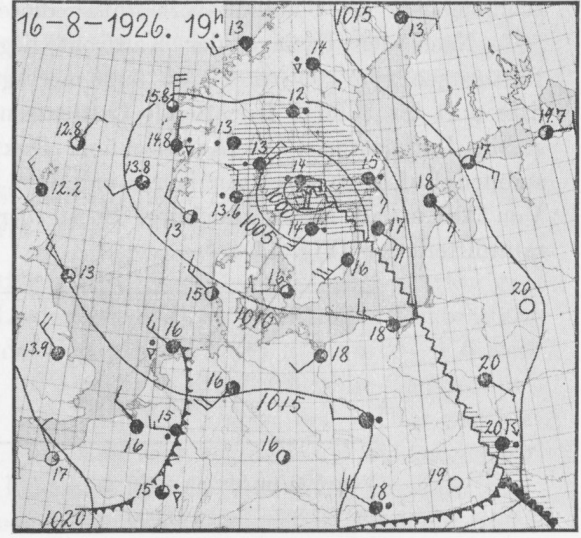 16-8-1926. 19h.
13
1015
13
14
15.8
12
12.8
14.8
13
13
19.7
17
13.8
14
15
12.2
13.6
1000
18
13
1005
14
17
13
16
15
16
20
1010
18
13.9
16
18
20
16
1015
16
15
20
17
16
19
15
18
1020